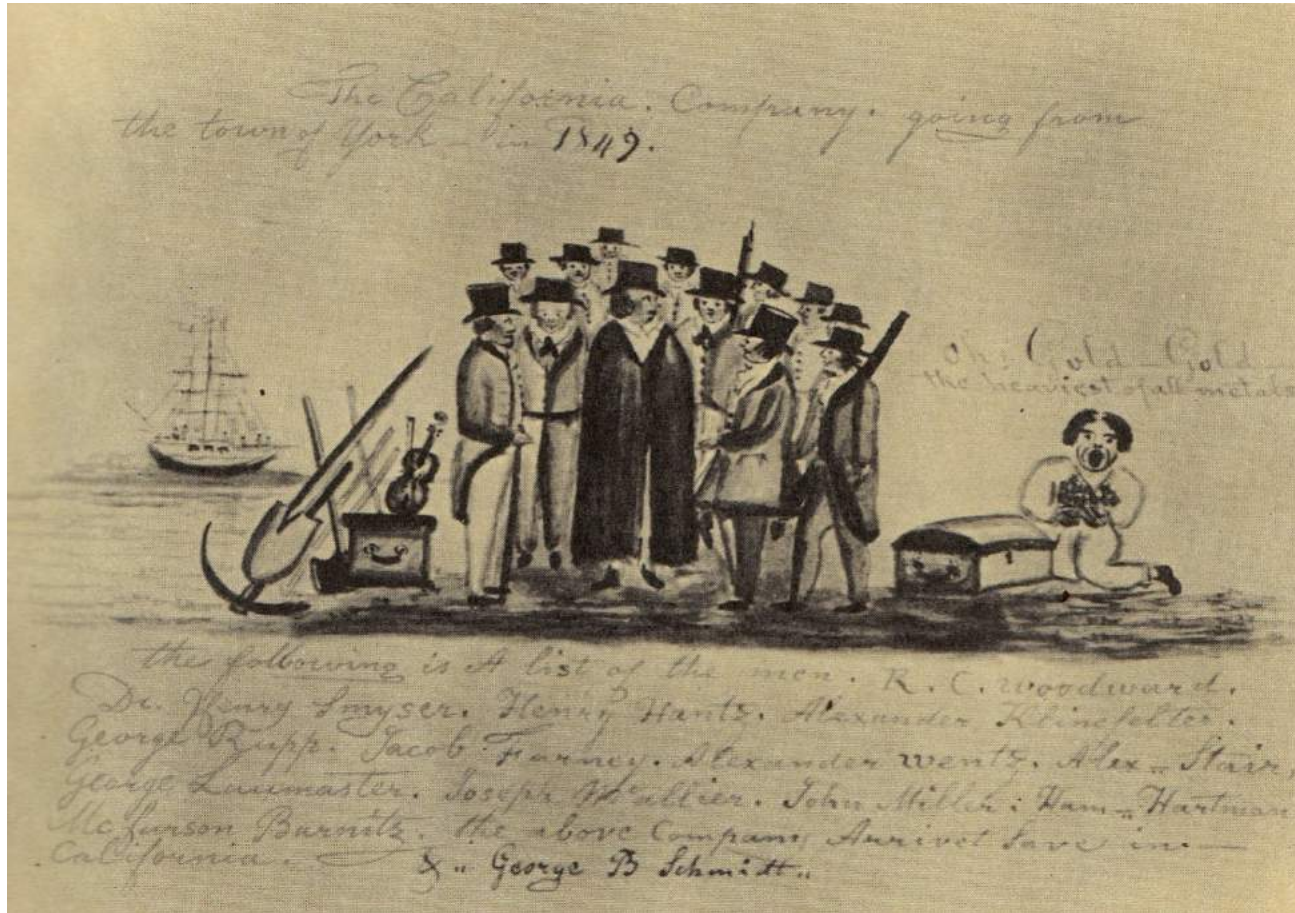 The California. Company. going from
the town of York – in 1849.
Oh! Gold Gold
the heaviest of all metals
the following is A list of the men. R. C. Woodward.
Dr. Henry Smyser. Henry Hantz. Alexander Klinefelter.
George Rupp. Jacob Farney. Alexander wentz. Alex„ Stair,
George Laumaster. Joseph McAllier. John Miller: Ham„ Hartman
McFurson Barnitz. the above Company Arrivet Save in –
California.
& „ George B Schmitt „